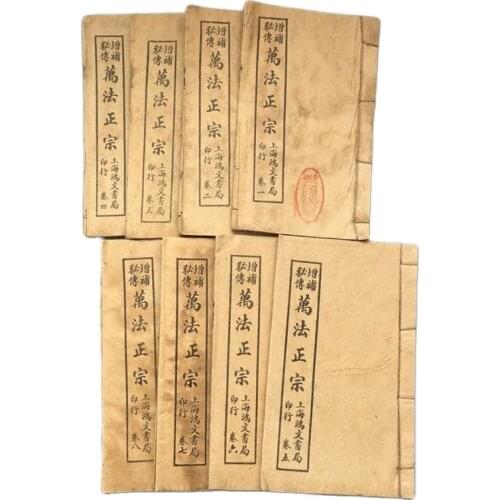 增補
秘傳
萬法正宗
上海鴻文書局
印行
卷一
增補
秘傳
萬法正宗
上海鴻文書局
印行
卷二
增補
秘傳
萬法正宗
上海鴻文書局
印行
卷三
增補
秘傳
萬法正宗
上海鴻文書局
印行
卷四
增補
秘傳
萬法正宗
上海鴻文書局
印行
卷五
增補
秘傳
萬法正宗
上海鴻文書局
印行
卷六
增補
秘傳
萬法正宗
上海鴻文書局
印行
卷七
增補
秘傳
萬法正宗
上海鴻文書局
印行
卷八